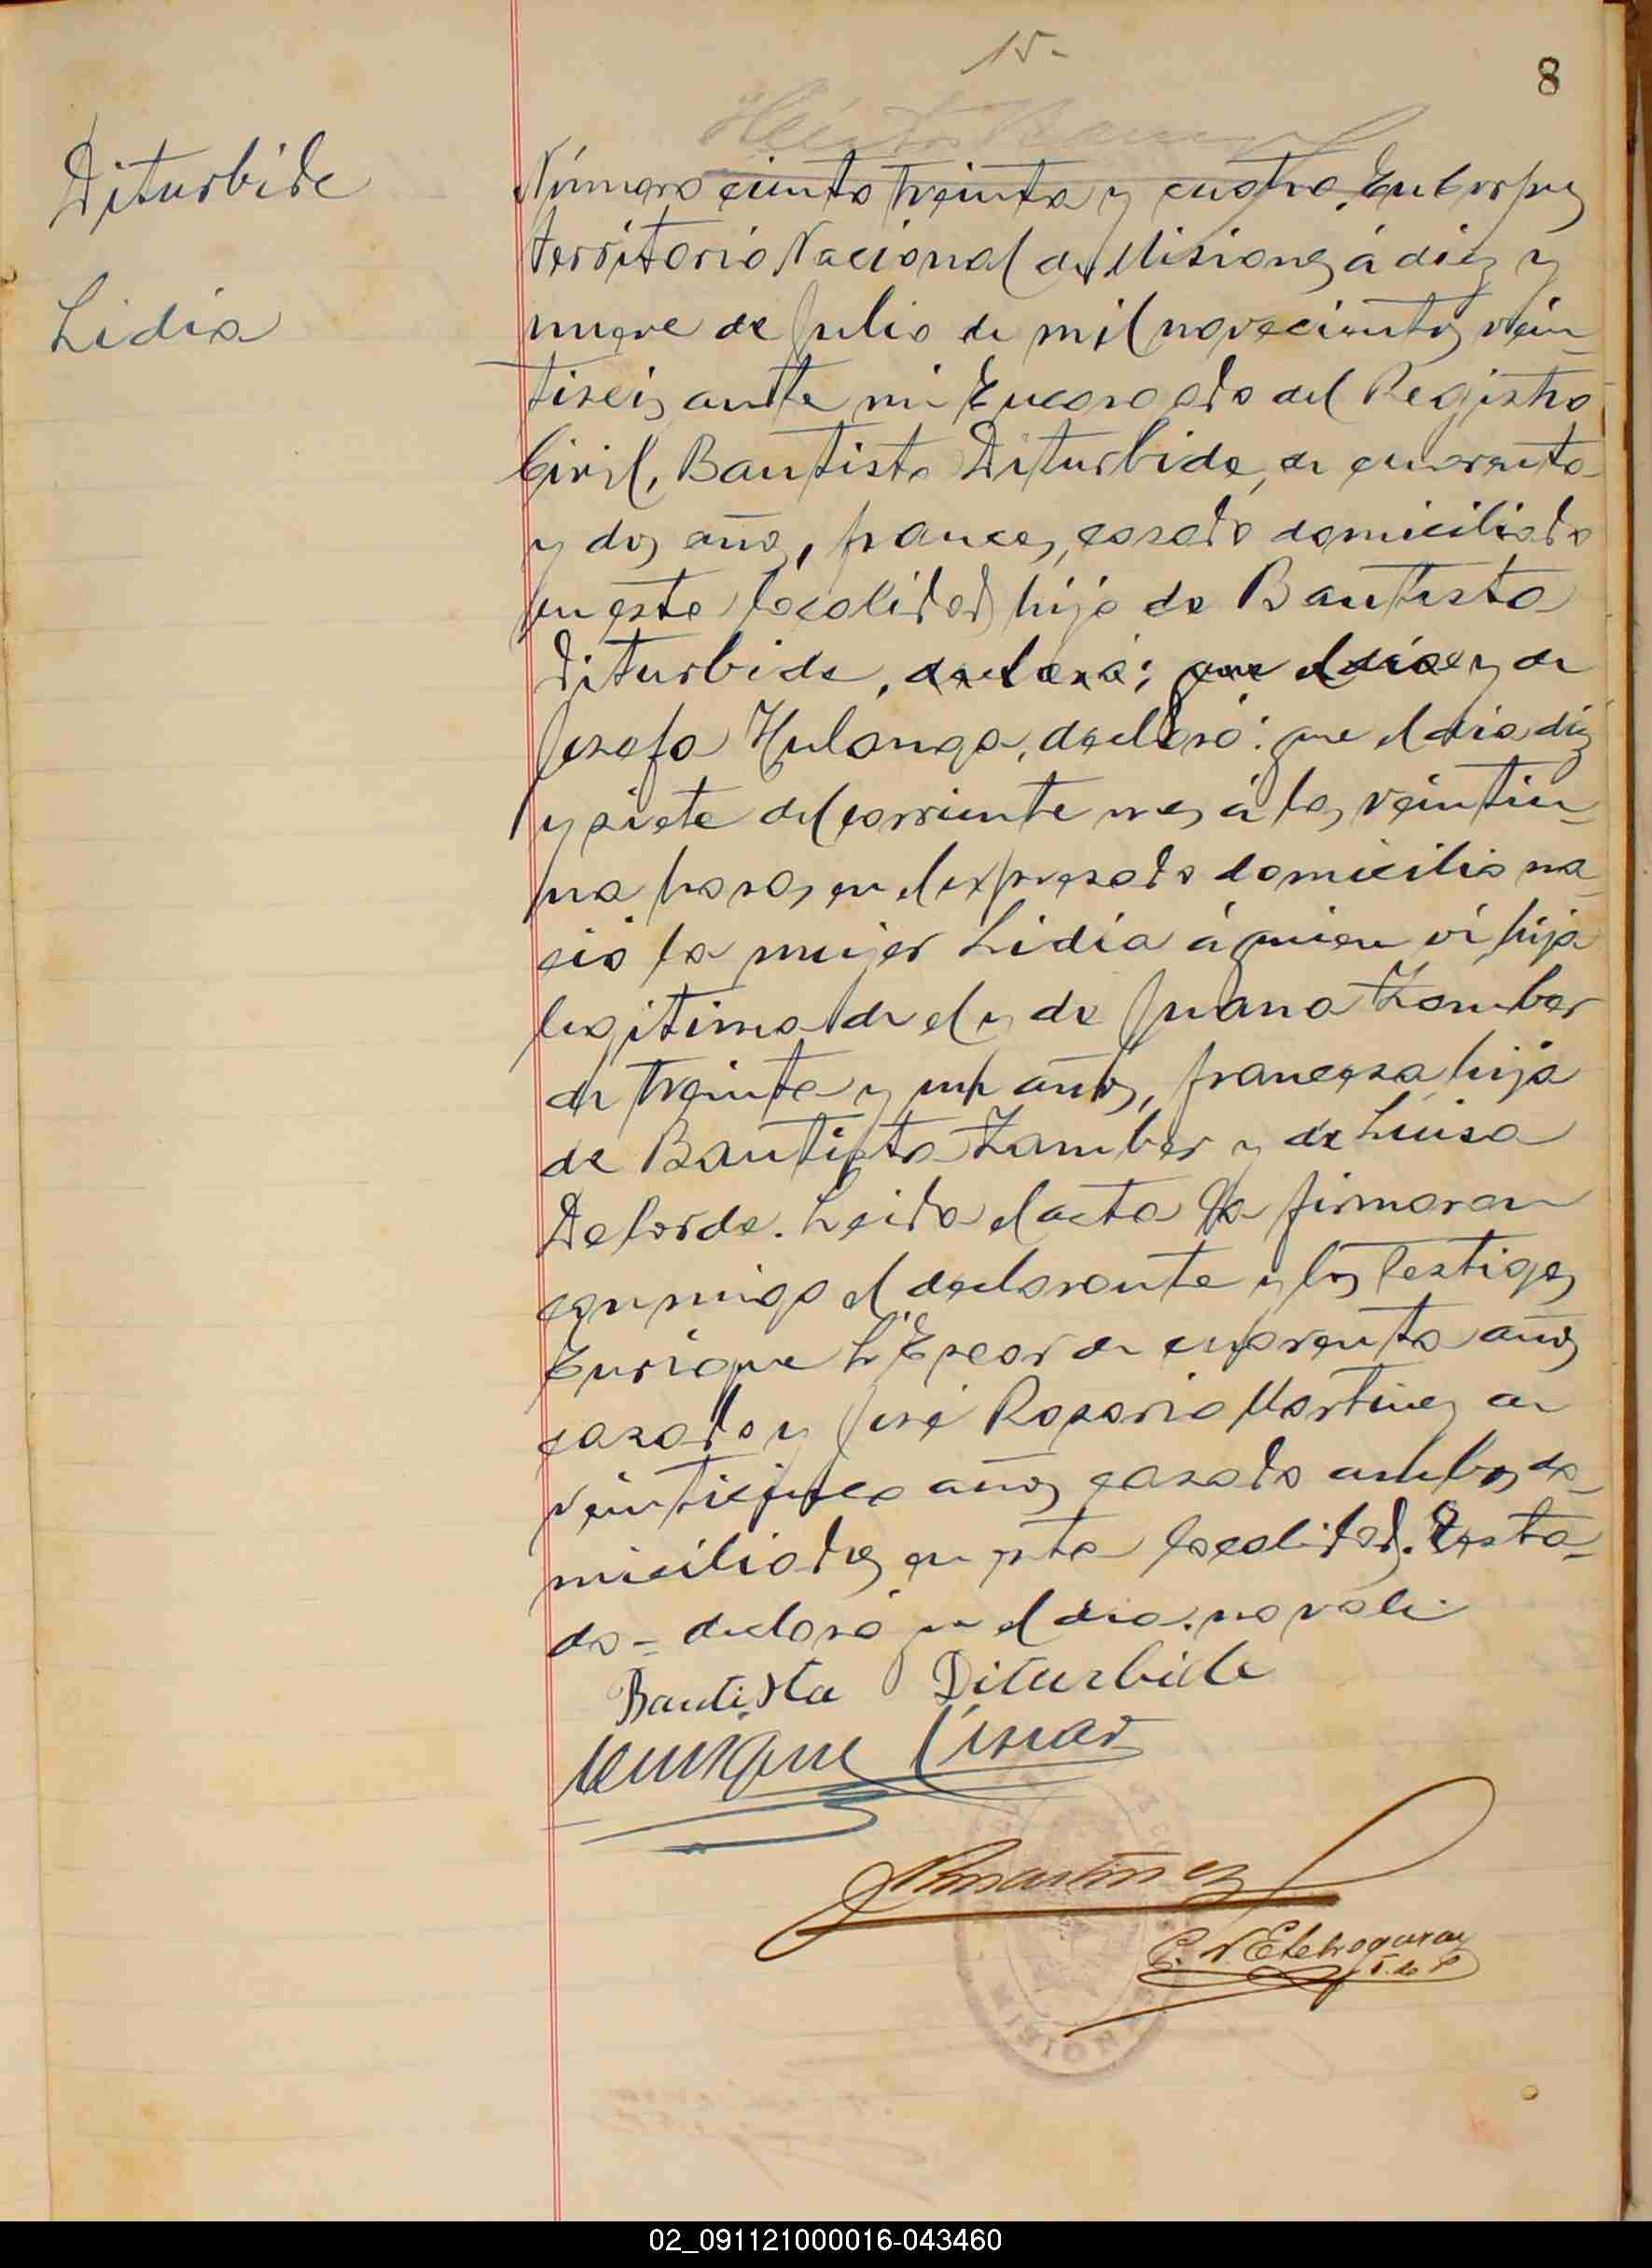 15-
8
Diturbide
Lidia
Número ciento treinta y cuatro. En Corpus
territorio Nacional de Misiones á diez y
nueve de Julio de mil novecientos vein-
tiseis ante mi Encargado del Registro
Civil, Bautista Diturbide, de cuarenta
y dos años, frances, casado domiciliado
en esta localidad hijo de Bautista
Diturbide, declaró: que el dia y de
Josefa Hulonga, declaró: que el dia diez
y siete del corriente mes á las veintiu-
na horas, en el expresado domicilio na-
ció la mujer Lidia á quien ví hija
legitima de el y de Juana Zamber
de treinta y un años, francesa hija
de Bautista Zamber y de Luisa
Delorde. Leida el acta la firmaron
conmigo el declarante y los testigos
Enrique L'Escar de cuarenta años
casado y José Rosario Martinez de
veinticinco años casado ambos do-
miciliados en esta localidad. Testa-
do = declaró que el dia. no vale.
Bautista Diturbide
Enrique Liscar
Martinez
C. N. Etchogaray
J. de P.
MISIONES
02_091121000016-043460